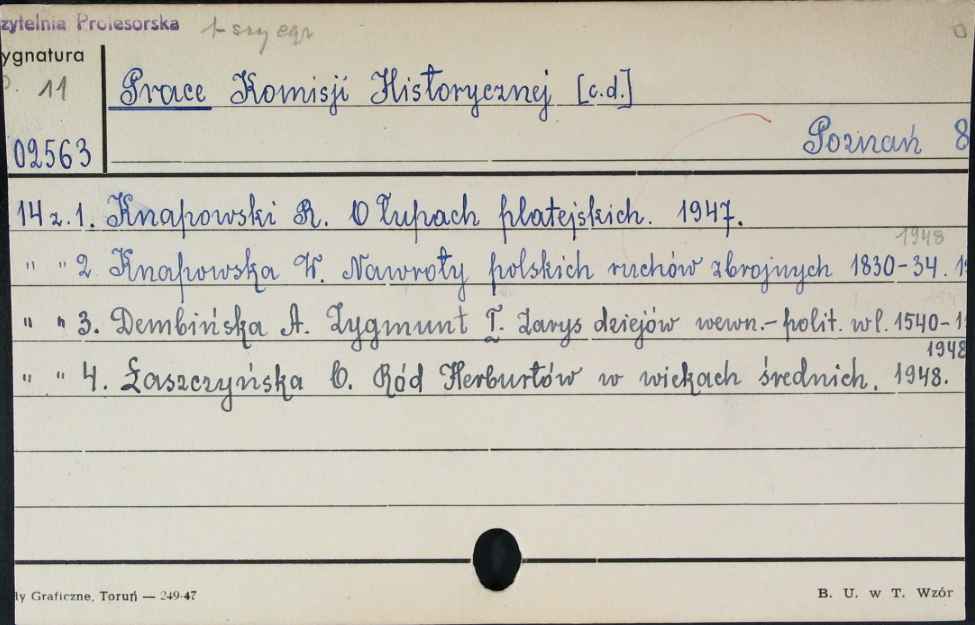 zytelnia Profesorska 1-szy egz
ygnatura
11
Prace Komisji Historycznej [c.d.]
02563
Poznań 8
14 z. 1. Knapowski R. O łupach platejskich. 1947.
1948
" " 2. Knapowska W. Nawroty polskich ruchów zbrojnych 1830-34.
" " 3. Dembińska A. Zygmunt I. Zarys dziejów wewn.-polit. w l. 1540-
1948
" " 4. Łaszczyńska O. Ród Herburtów w wiekach średnich. 1948.
ly Graficzne, Toruń — 249-47
B. U. w T. Wzór